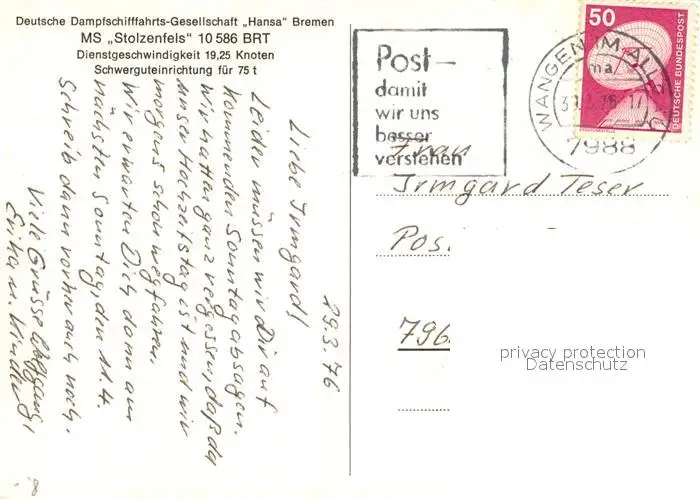 Deutsche Dampfschifffahrts-Gesellschaft „Hansa" Bremen
MS „Stolzenfels" 10 586 BRT
Dienstgeschwindigkeit 19,25 Knoten
Schwerguteinrichtung für 75 t
29.3.76
Liebe Irmgard!
Leider müssen wir Dir auf
kommenden Sonntag absagen.
Wir hatten ganz vergessen, daß da
unser Hochzeitstag ist und wir
morgens schon wegfahren.
Wir erwarten Dich dann am
nächsten Sonntag, den 11.4.
Schreib dann vorher auch noch.
Viele Grüsse Wolfgang,
Erika u. Kinder
Post –
damit
wir uns
besser
verstehen
WANGEN IM ALLG
7988
50
DEUTSCHE BUNDESPOST
Frau
Irmgard Teser
Pos.
796
privacy protection
Datenschutz